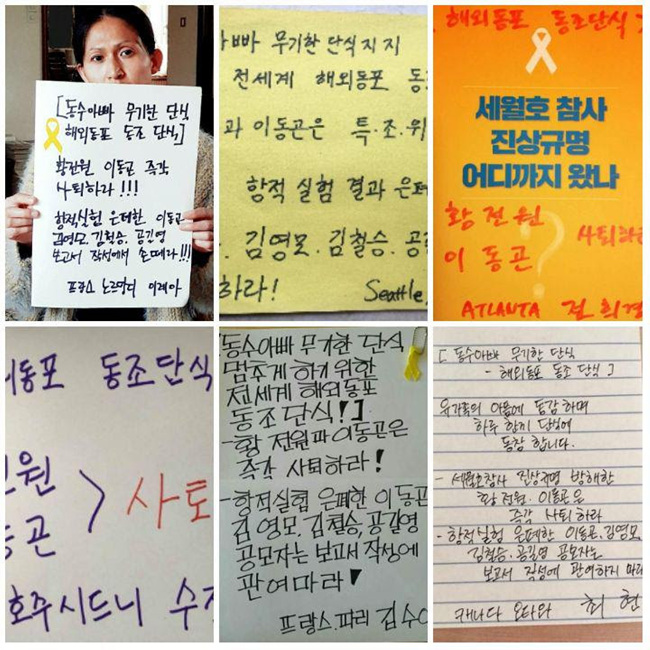 [동수아빠 무기한 단식
해외동포 동조 단식]
황전원 이동곤 즉각
사퇴하라!!!
항적실험 은폐한 이동곤
김영모, 김철승, 공길영
보고서 작성에서 손떼라!!!
프랑스 노르망디 이례아
아빠 무기한 단식 지지
전세계 해외동포 동
과 이동곤은 특·조·위
항적 실험 결과 은폐
김영모. 김철승. 공
하라!
Seattle,
해외동포 동조단식
세월호 참사
진상규명
어디까지 왔나
황전원
이동곤
사퇴하
ATLANTA 전희경
외동포 동조단식
전원
동곤
> 사퇴
호주시드니 수
[동수아빠 무기한 단식
멈추게 하기 위한
전세계 해외동포
동조단식!]
-황 전원과 이동곤은
즉각 사퇴하라!
-항적실험 은폐한 이동곤
김영모, 김철승, 공길영
공모자는 보고서 작성에
관여마라!
프랑스.파리 김수
[동수아빠 무기한 단식
- 해외동포 동조 단식]
유가족의 아픔에 동감하며
하루 함께 단식에
동참 합니다.
- 세월호참사 진상규명 방해한
황전원. 이동곤은
즉각 사퇴 하라
- 항적실험 은폐한 이동곤. 김영모.
김철승. 공길영 공모자는
보고서 작성에 관여하지 마라
캐나다 오타와 최 현